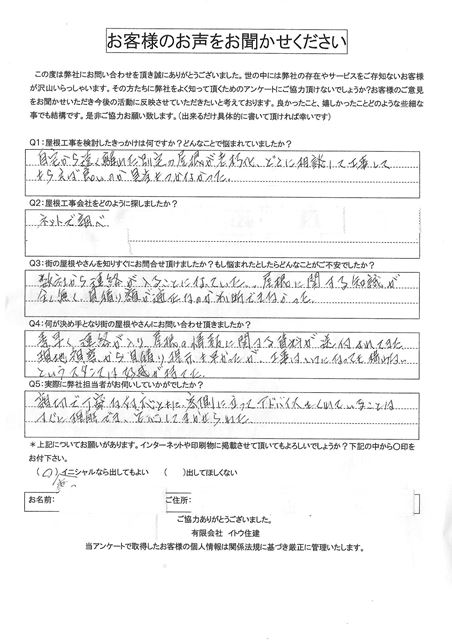 お客様のお声をお聞かせください
この度は弊社にお問い合わせを頂き誠にありがとうございました。世の中には弊社の存在やサービスをご存知ないお客様
が沢山いらっしゃいます。その方たちに弊社をよく知って頂くためのアンケートにご協力頂けないでしょうか?お客様のご意見
をお聞かせいただき今後の活動に反映させていただきたいと考えております。良かったこと、嬉しかったことどのような些細な
事でも結構です。是非ご協力お願い致します。(出来るだけ具体的に書いて頂ければ幸いです)
Q1:屋根工事を検討したきっかけは何ですか?どんなことで悩まれていましたか?
自宅から遠く離れた別宅の屋根が老朽化、どこに相談して工事して
もらえば良いのか見当もつかなかった。
Q2:屋根工事会社をどのように探しましたか?
ネットで調べ
Q3:街の屋根やさんを知りすぐにお問合せ頂けましたか?もし悩まれたとしたらどんなことがご不安でしたか?
から連絡が入ることになっていた。屋根に関する知識が
全く無く、見積り額が適正なのか判断できなかった。
Q4:何が決め手となり街の屋根やさんにお問い合わせ頂きましたか?
素早く連絡が入り、屋根の情報に関する資料が送付されてきた
現地視察から見積り提示も早かったが、工事はいつになっても構わない
というスタンスは好感が持てた。
Q5:実際に弊社担当者がお伺いしていかがでしたか?
親切で丁寧な
*上記についてお願いがあります。インターネットや印刷物に掲載させて頂いてもよろしいでしょうか?下記の中から〇印を
お付下さい。
( 〇 )イニシャルなら出してもよい ( )出してほしくない
お名前: ご住所:
ご協力ありがとうございました。
有限会社 イトウ住建
当アンケートで取得したお客様の個人情報は関係法規に基づき厳正に管理いたします。